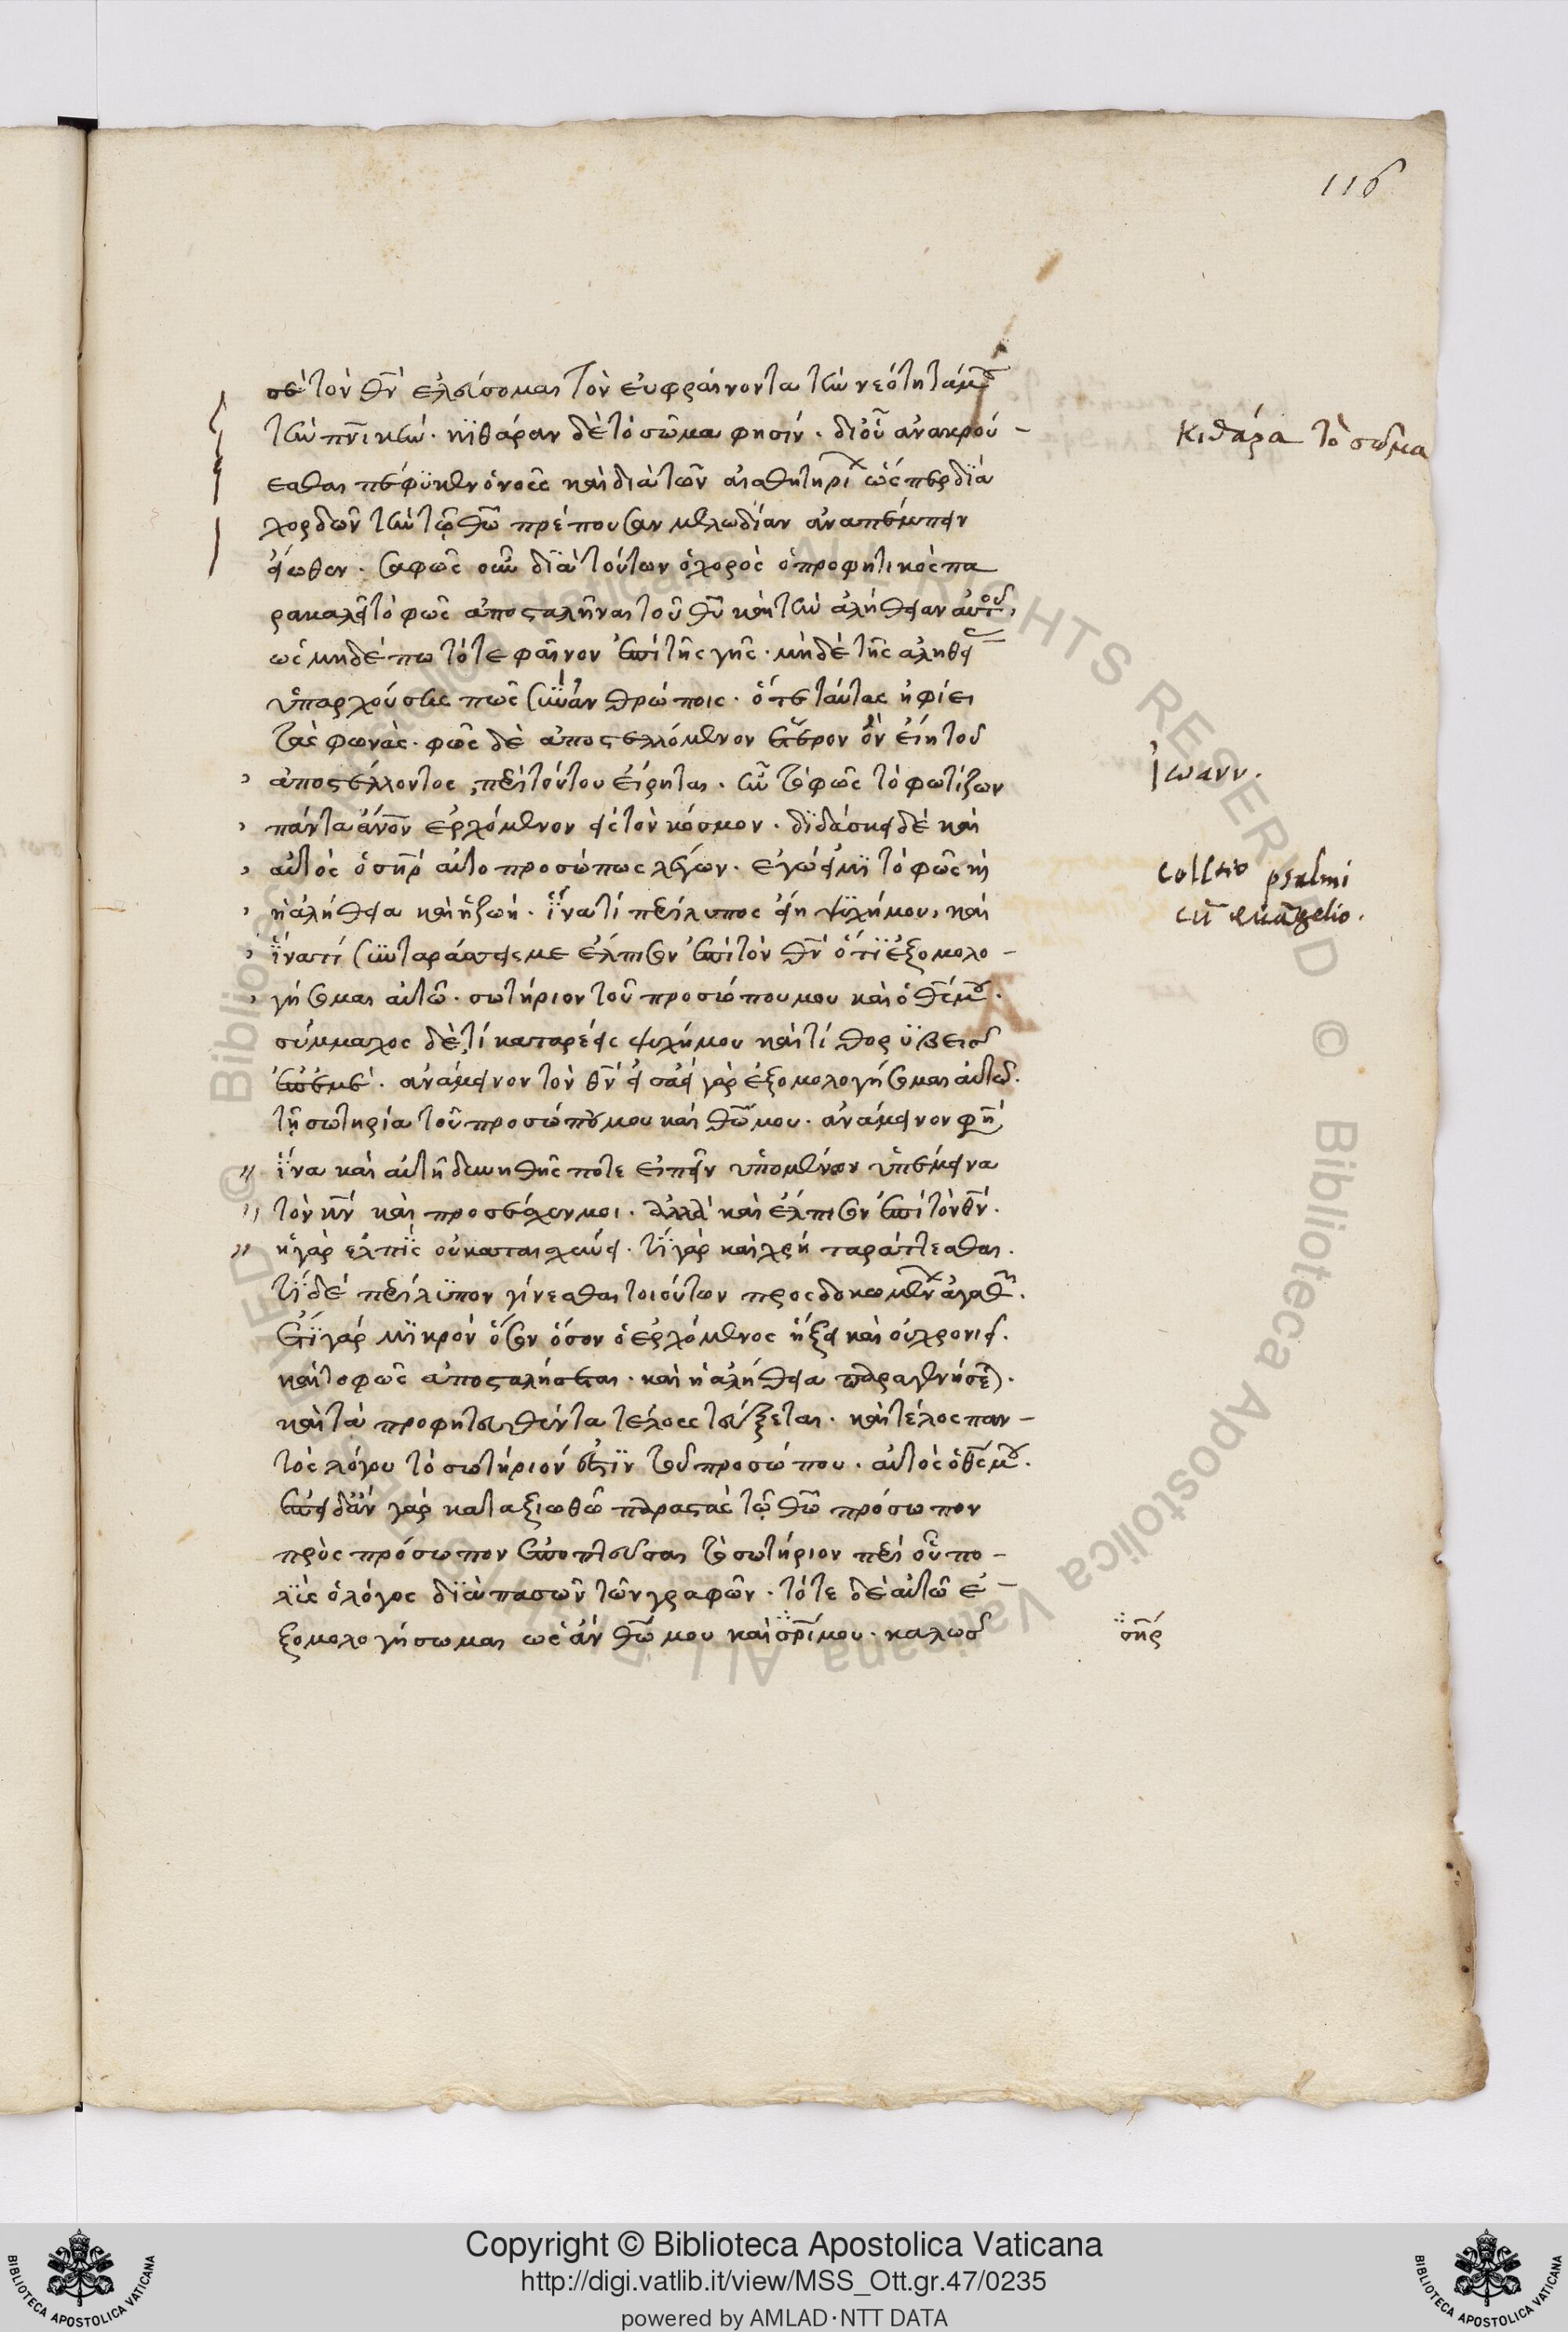 116
σὲ τὸν θν̄ ἐλεύσομαι τὸν εὐφραίνοντα τὴν νεότητά μου
τὴν πν̄ικήν. κϊθάραν δὲ τὸ σῶμα φησίν. δι οὗ ἀνακρού-
εσθαι πέφϋκεν ὁ νοῦς καὶ διὰ τῶν αἰσθητηρί ὥσπερ δϊὰ
χορδῶν τὴν τῷ θῶ πρέπουσαν μελωδίαν ἀναπέμπειν
εἴωθεν. σαφῶς οὖν δϊὰ τούτων ὁ χορὸς ὁ προφητικὸς πα
ρακαλεῖ τὸ φῶς ἀποσταλῆναι τοῦ θῦ καὶ τὴν ἀλήθειαν αὐτοῦ,
ὡς μηδέπω τότε φαῖνον ἐπὶ τῆς γῆς. μὴ δὲ τῆς ἀληθεί
ὑπαρχούσης πω σὺν ἀνθρώποις. ὅτε ταύτας ἠφίει
τὰς φωνάς. φῶς δὲ ἀποστελλόμενον ἕτερον ὂν εἴη τοῦ
ἀποστέλλοντος, περὶ τούτου εἴρηται. ἦν τὸ φῶς τὸ φωτίζων
πάντα ἄνον ἐρχόμενον εἰς τὸν κόσμον. δϊδάσκει δὲ καὶ
αὐτὸς ὁ σηρ αὐτοπροσώπως λέγων. ἐγώ εἰμϊ τὸ φῶς καὶ
ἡ ἀλήθεια καὶ ἡ ζωή. ἵνα τί περίλυπος εἶ ἡ ψϋχή μου, καὶ
ἵνα τί συνταράσσεις με ἔλπισον ἐπὶ τὸν θν̄ ὅτϊ ἐξομολο-
γήσομαι αὐτῶ. σωτήριον τοῦ προσώπου μου καὶ ὁ θς̄ μου.
σύμμαχος δὲ, τί καταρέεις ψυχή μου καὶ τί θορϋβεῖσ
ἐπ ἐμέ. ἀνάμεινον τὸν θν̄ εἰσαεὶ γὰρ ἐξομολογήσομαι αὐτῶ.
τῇ σωτηρία τοῦ προσώπου μου καὶ θῶ μου. ἀνάμεινον φη
ἵνα καὶ αὐτὴ δυνηθῇς ποτε εἰπεῖν ὑπομένων ὑπέμεινα
τὸν κν̄ καὶ προσέσχεν μοι. ἀλλὰ καὶ ἔλπισον ἐπὶ τὸν θν̄.
ἡ γὰρ ἐλπῒς οὐ καταισχύνει. τΐ γὰρ καὶ χρὴ ταράττεσθαι.
τΐ δέ περίλϋπον γίνεσθαι τοιούτων προσδοκωμένων ἀγαθ.
ἔτϊ γὰρ μϊκρὸν ὅσον ὅσον ὁ ἐρχόμενος ἥξει καὶ οὐ χρονιεῖ.
καὶ το φῶς ἀποσταλήσεται. καὶ ἡ ἀλήθεια παραγενήσε).
καὶ τὰ προφητευθέντα τέλους τεύξεται. καὶ τέλος παν-
τὸς λόγου τὸ σωτήριόν ἐστϊν τοῦ προσώπου. αὐτὸς ὁ θς̄ μου.
ἐπειδὰν γὰρ καταξιωθῶ παραστὰς τῷ θῶ πρόσωπον
πρὸς πρόσωπον ἐποπτεῦσαι τὸ σωτήριον περὶ οὗ πο-
λῢς ὁ λόγος δϊὰ πασῶν τῶν γραφῶν. τότε δὲ αὐτῶ ἐ-
ξομολογήσωμαι ὡς ἂν θῶ μου καὶ σρ̄ί μου. καλωσ
κιθάρα τὸ σῶμα
Ἰωανν.
collatio psalmi
cū euāgelio.
σηρ